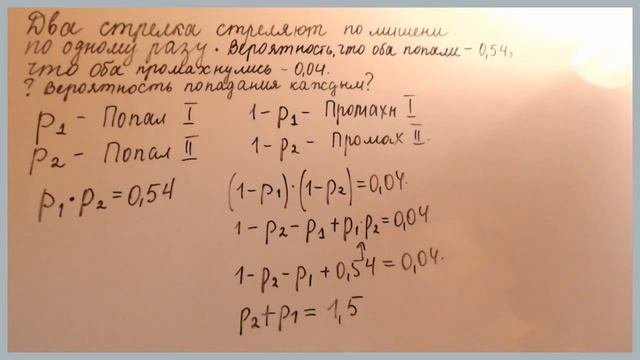 Два стрелка стреляют по мишени
по одному разу. Вероятность, что оба попали - 0,54,
что оба промахнулись - 0,04.
? Вероятность попадания каждым?
p₁ - Попал I
p₂ - Попал II
p₁·p₂=0,54
1-p₁- Промахн I
1-p₂ - Промах II.
(1-p₁)·(1-p₂)=0,04.
1-p₂-p₁+p₁·p₂=0,04
↑
1-p₂-p₁+0,54=0,04.
p₂+p₁=1,5